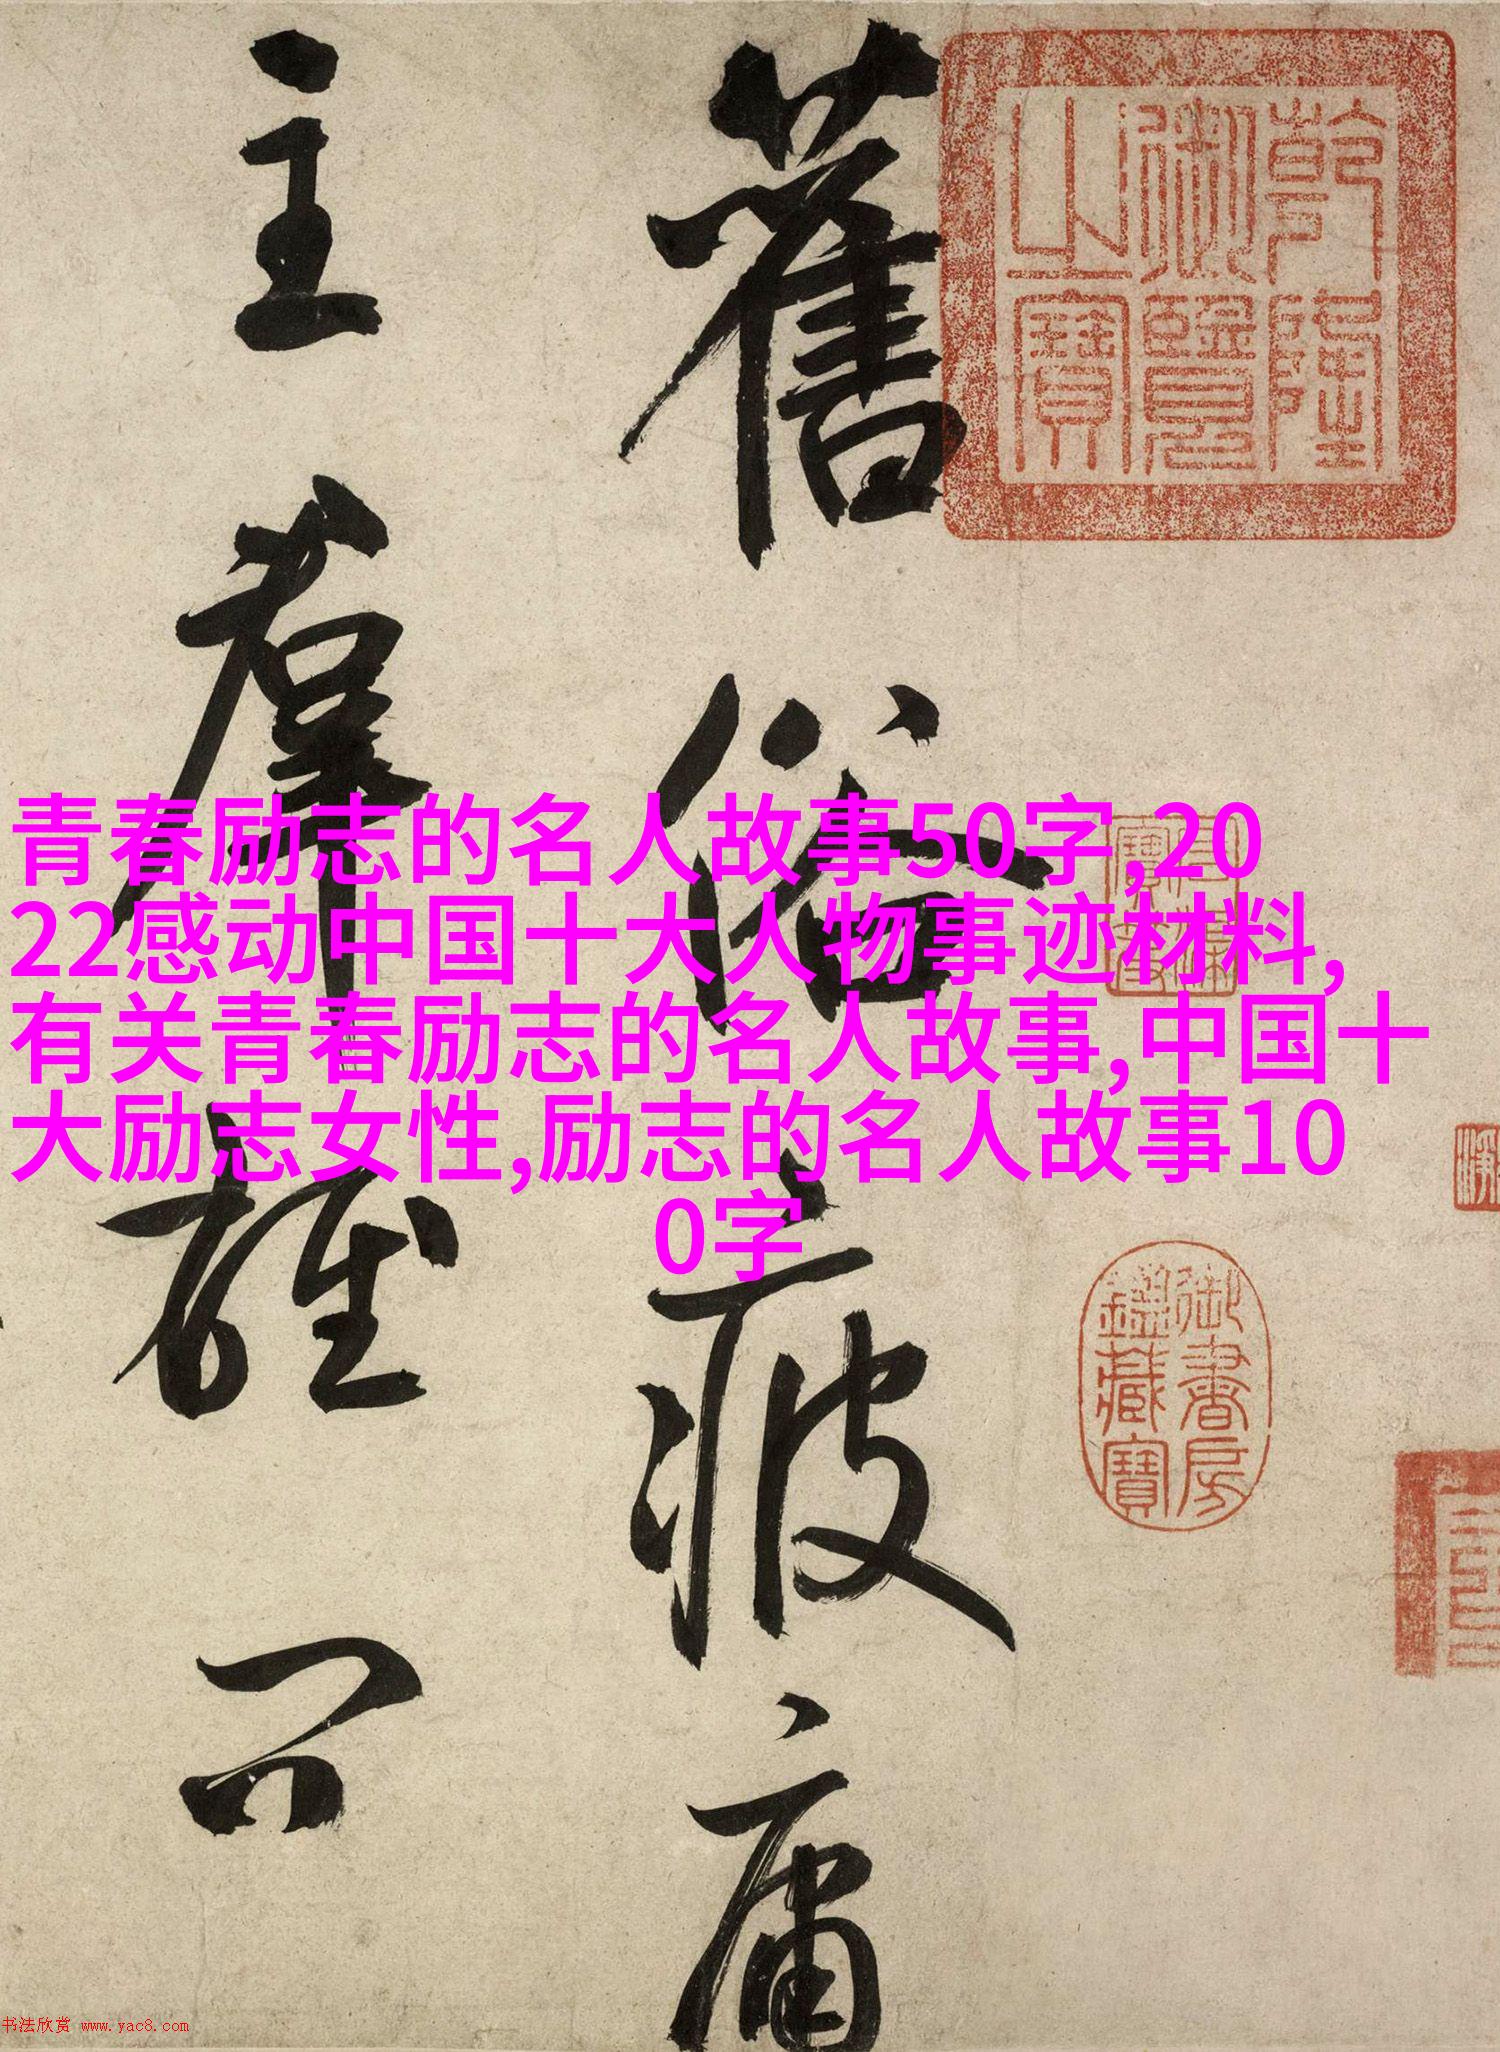 乾隆
御覽
之寶
舊俗疲庸
主羣雄問
青春励志的名人故事50字,20
22感动中国十大人物事迹材料,
有关青春励志的名人故事,中国十
大励志女性,励志的名人故事10
0字
御書房
鑑藏寶
书法欣赏 www.yac8.com